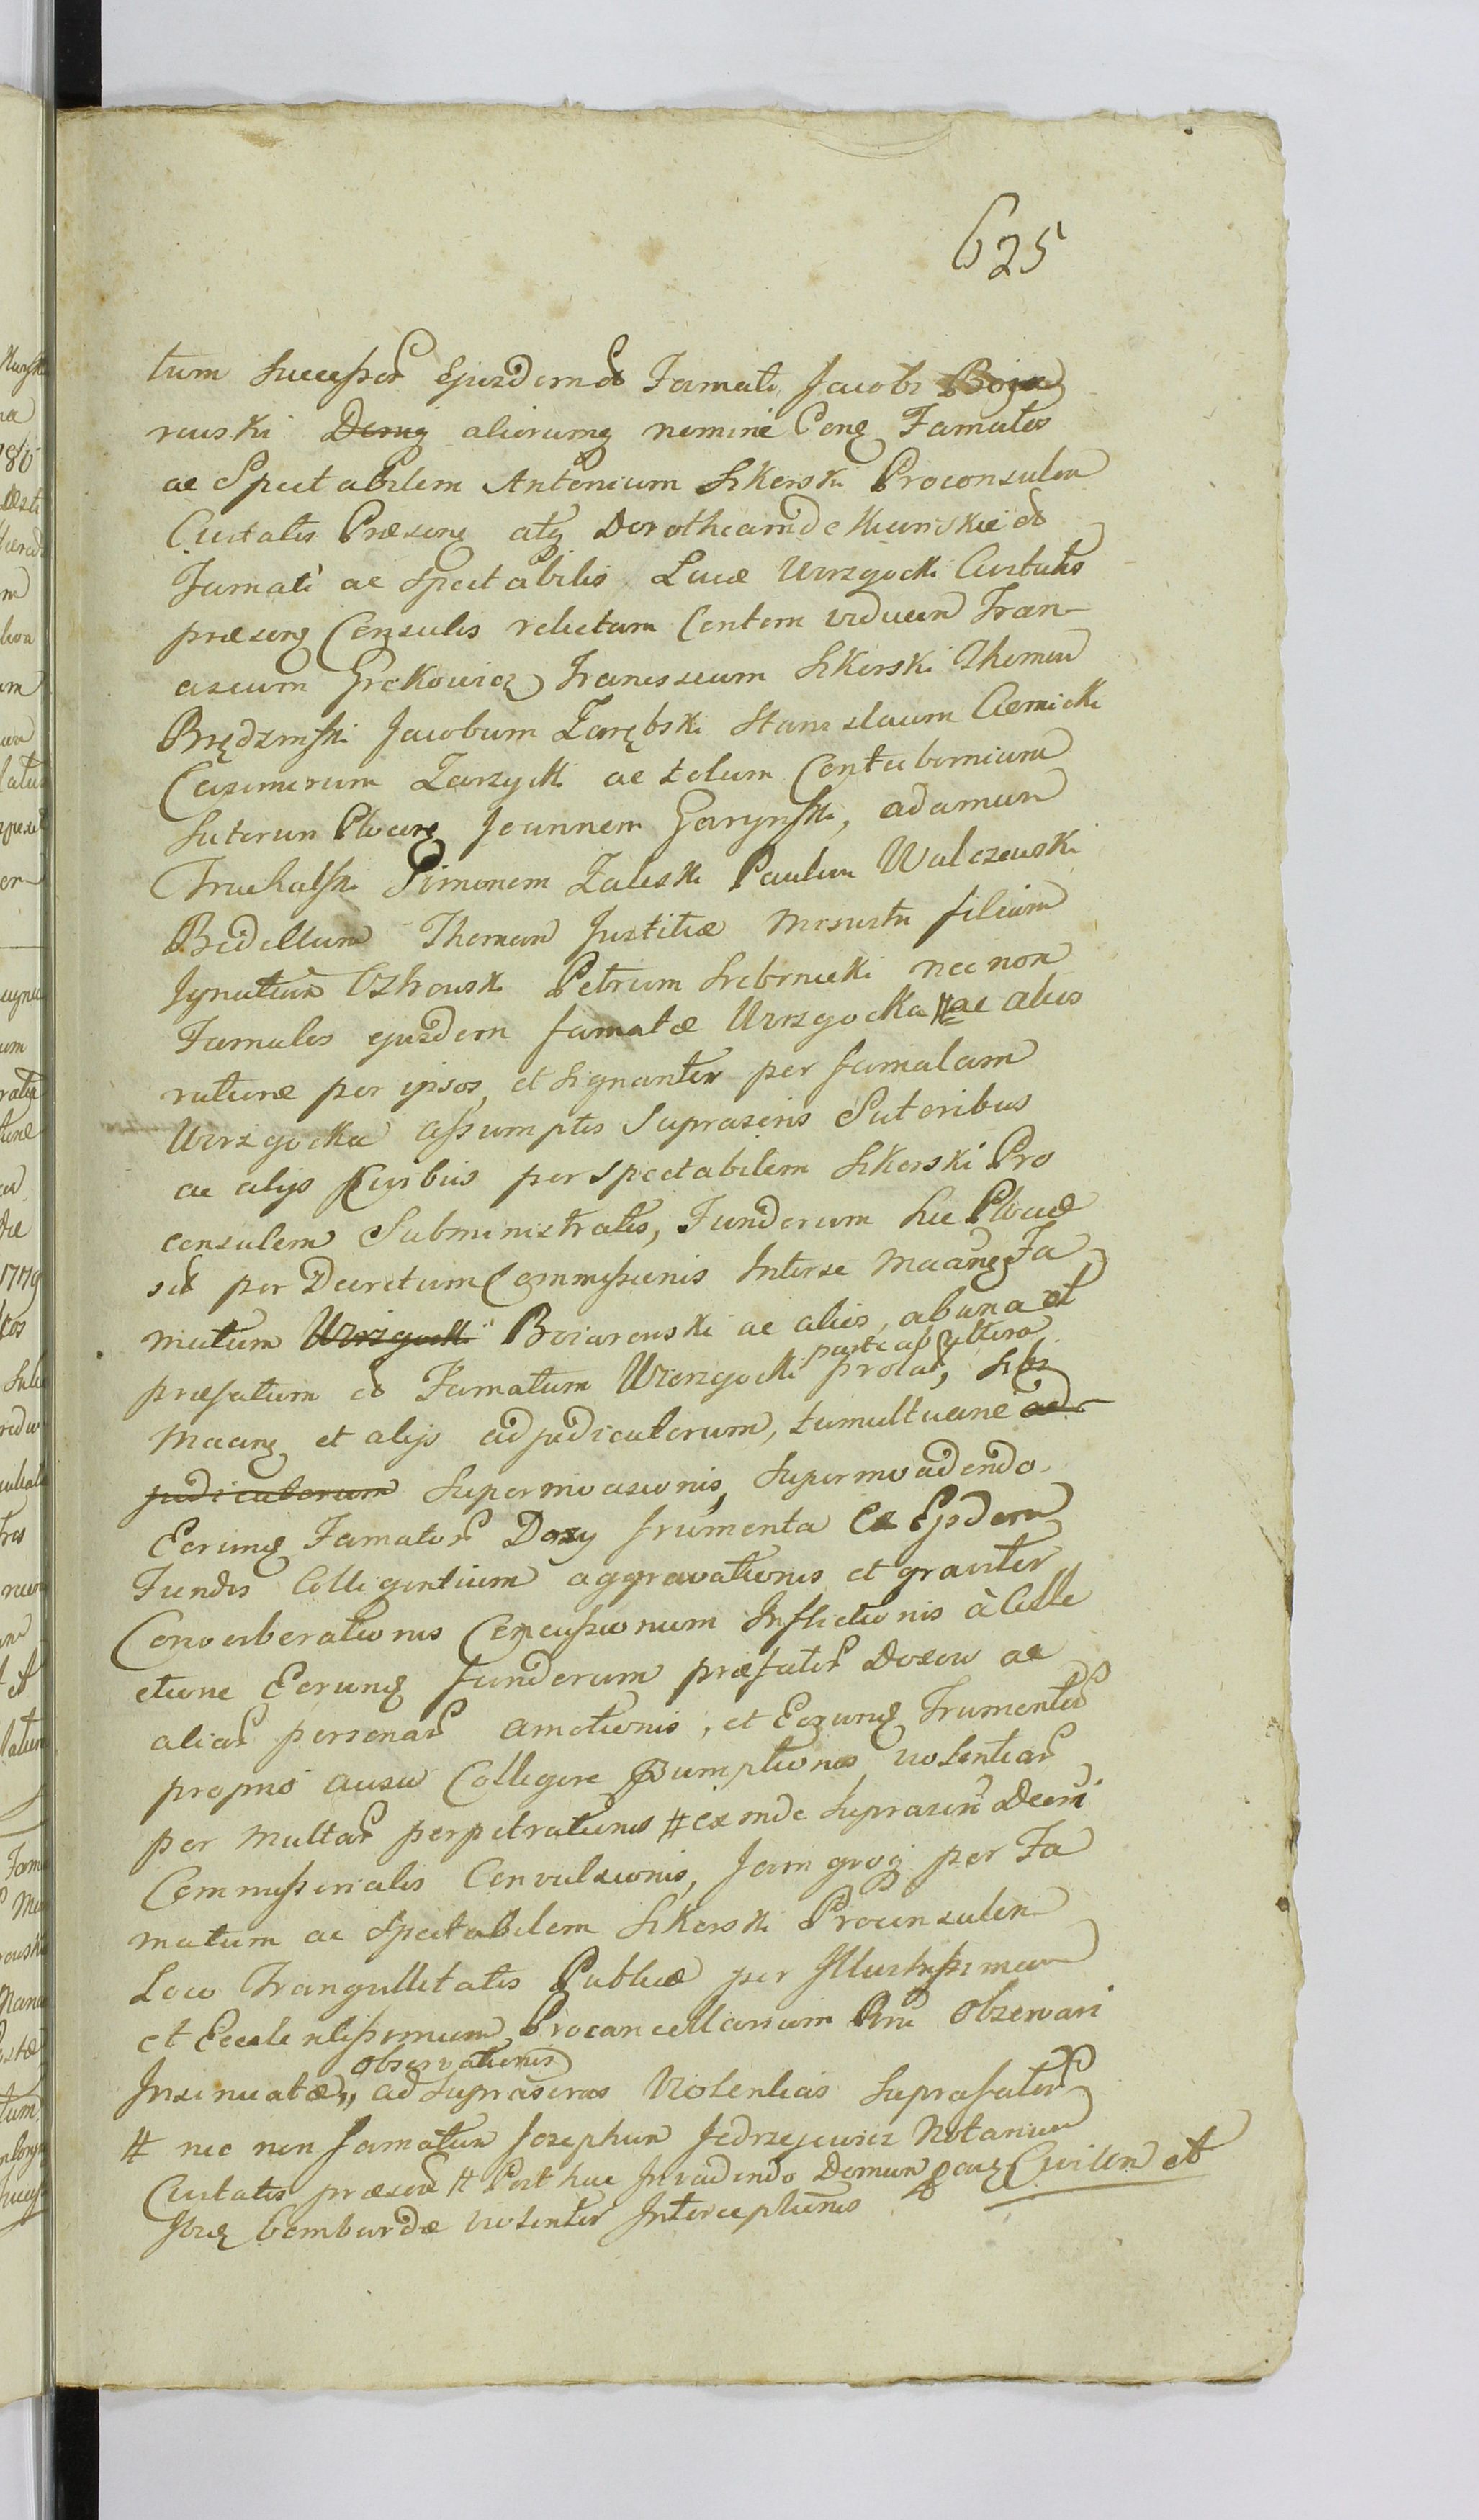 625
tum Successor Ejusdem et Famati Jacobi Boja
rowski Deniq aliorumq nomine Conq Famatos
ac Spectabilem Antonium Sikorski Proconsulem
Civitatis Præsenq atq Dorotheam de et
Famati ac Spectabilis Lucæ Wirzgocki Civitatis
præsenq Consulis relictam Contem viduam Fran
ciscum Grekowicz Franciscum Sikorski Thomam
Jacobum Zarębski Stanislaum
Casimirum Zarzycki ac totum Contubernium
Sutorum Plocenq Joannem Garynski, adamum
Truchalski Simonem Zaleski Paulum Walczewski
Bidellum Thomam Justitiæ Ministri filium
Ignatium Petrum Srebrnicki nec non
Famulos ejusdem famatæ Wirzgocka ac alios
ratione per ipsos, et Signanter per famatam
Wirzgocka assumptis Suprascris Sutoribus
ac alijs Civibus per Spectabilem Sikorski Pro
consulem Subministratis, Fundorum hic Plocæ
sit per Decretum Commissionis Interse Maanq Fa
matum Wirzgocki Boiarowski ac alios, ab una et
parte ab altera
præfatum et Famatum Wirzgocki, Sibi
Maanq et alijs adjudicatorum, tumultuarie ad
judicatorum Supermocasionis, Supermoadendo
Eorumq Famator Dozy frumenta Ex Ejsdem
Fundis Colligentium aggravationis et graviter
Converberationis Concussionum Inflictionis à Colle
ctione Eorumq fundorum præfator ac
aliar personar amotionis, et Eorumq Frumentor
proprio ausu Colligere Sumptionis, violentiar
per multar perpetrationis # exinde Suprascri Decri
Commissorialis Convulsionis, Jam per Fa
matum ac Spectabilem Sikorski Proconsulem
Loco Tranquillitatis Publicæ per Illustrissimum
et Excelentissimum Procancellarium Rni Observari
observationis
Insinuatæ,, ad Suprascras Violentias Suprafator
# nec non famatum Josephum Jedrzejewicz Notarium
Civitatis præsen # Post hac Invadendo Domum Civilem et
bombardæ violenter Interceptionis